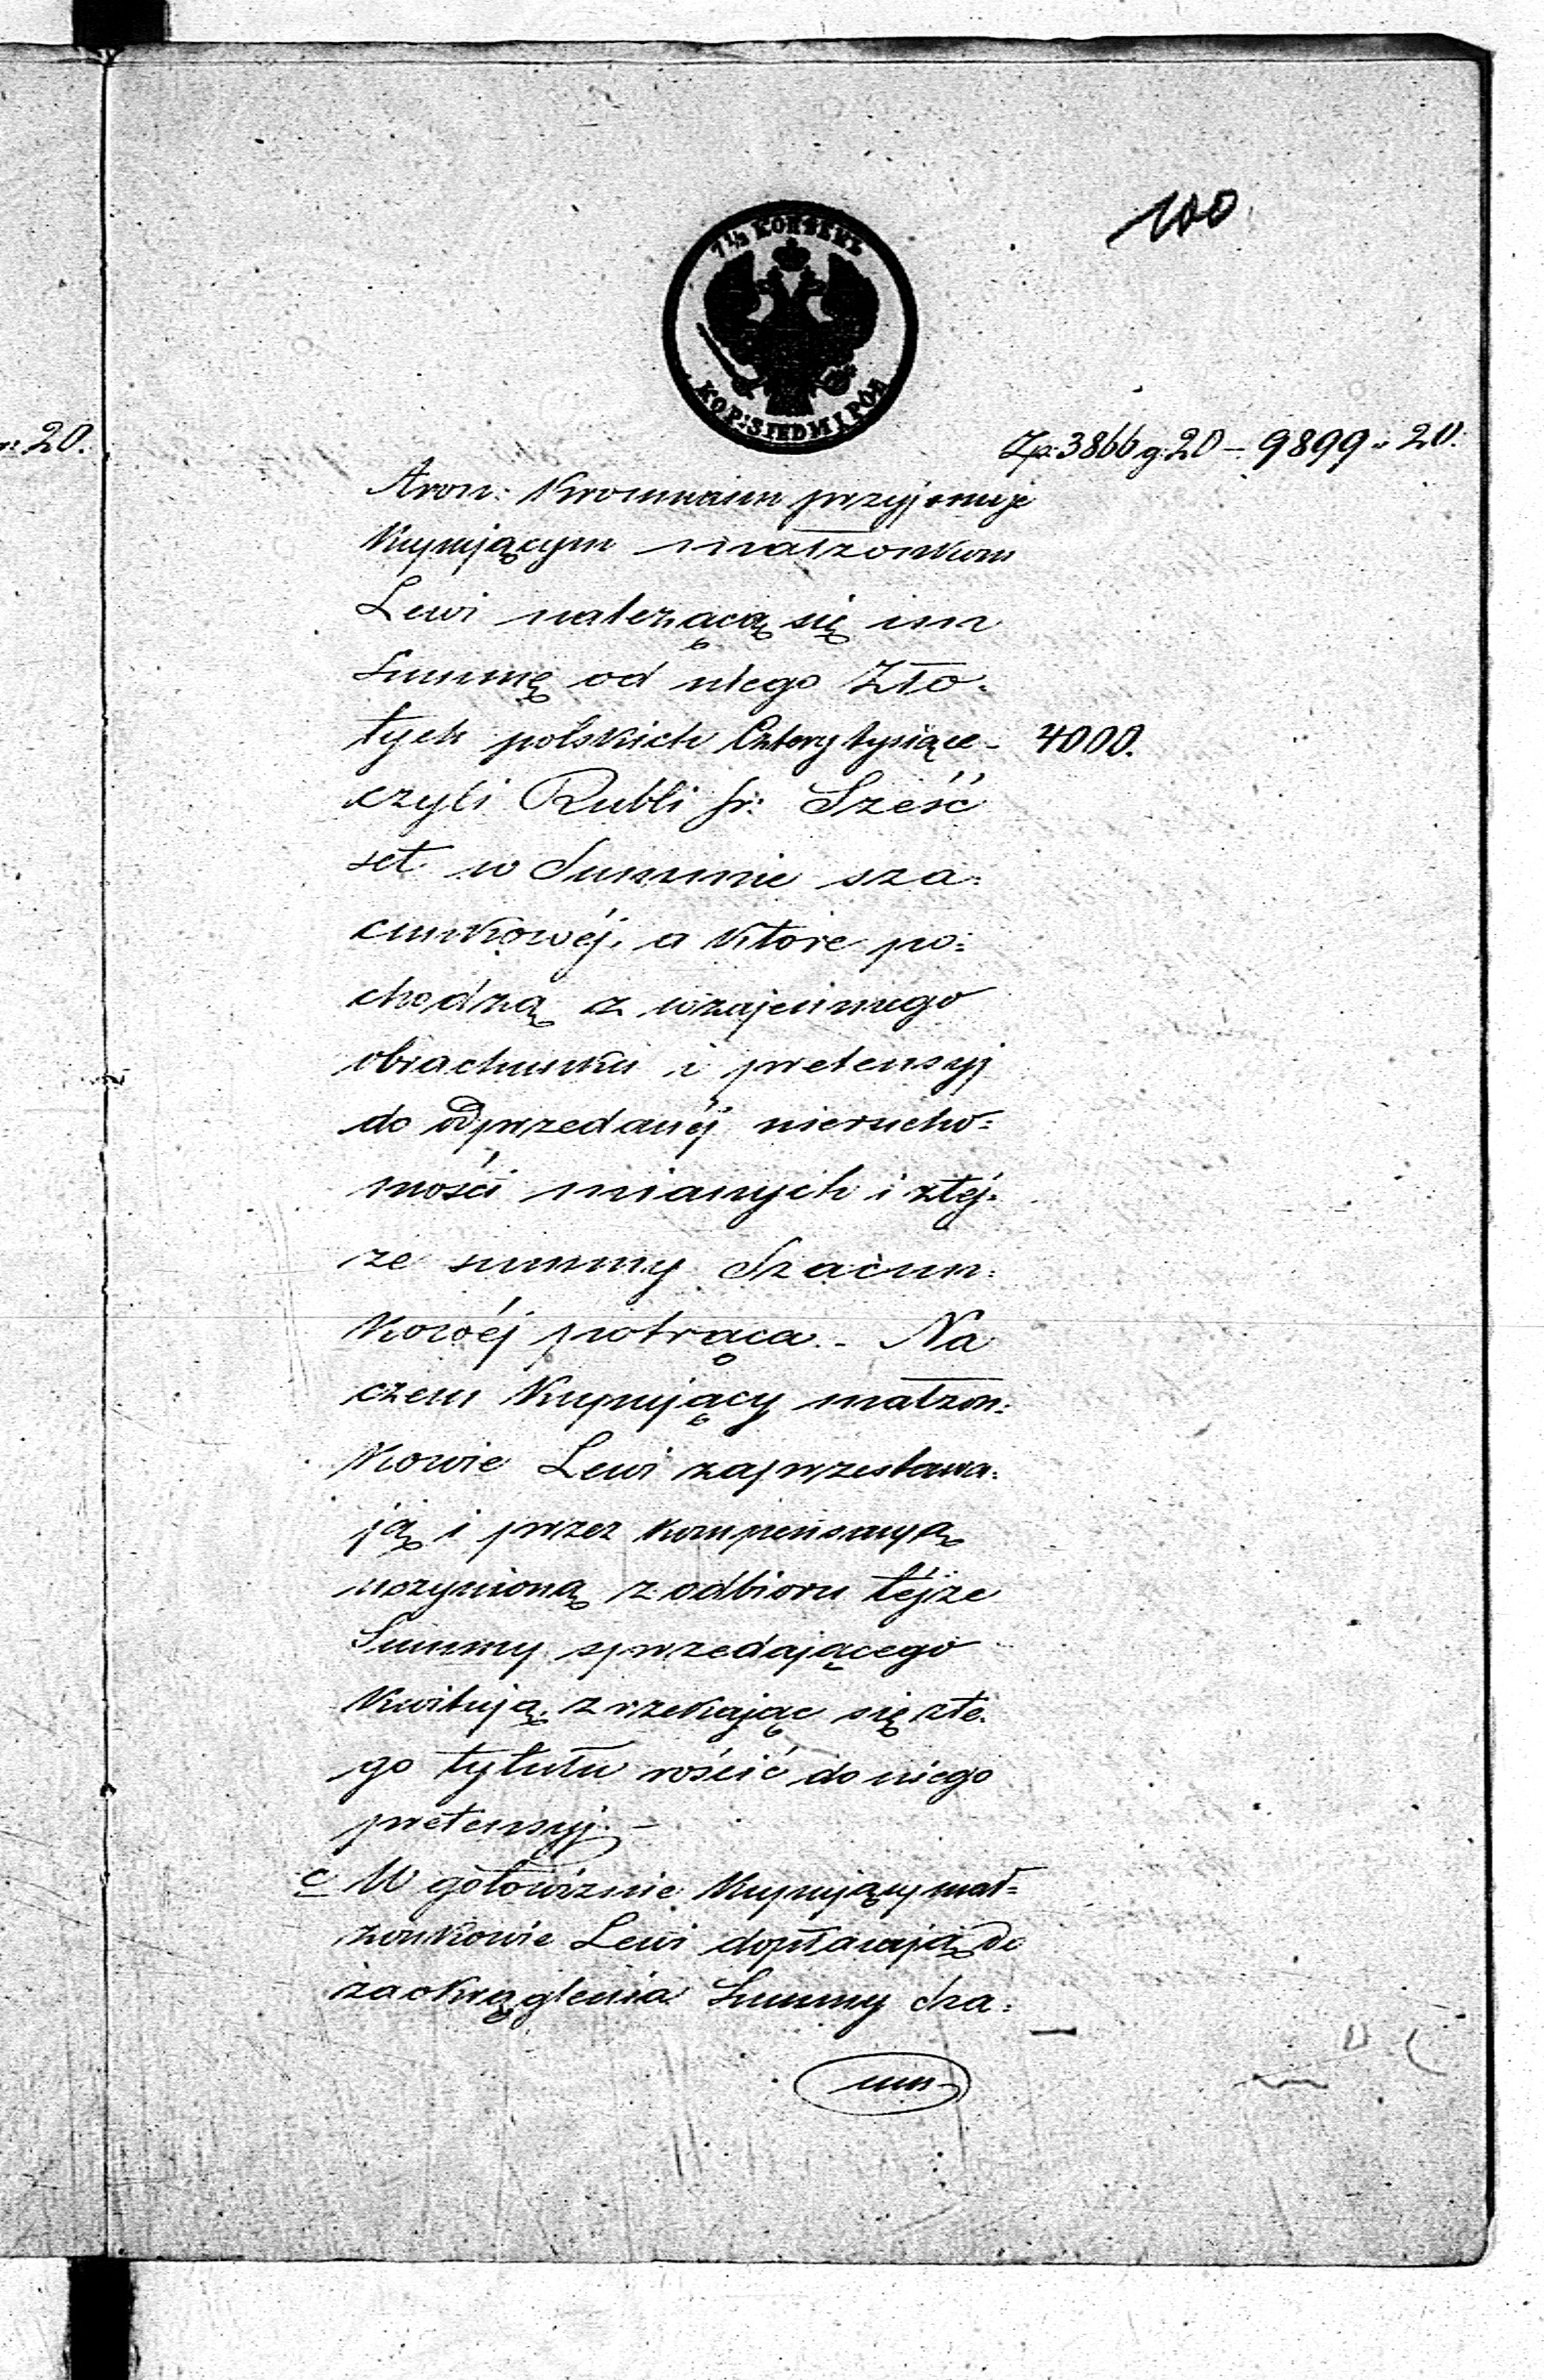 100
7½ КОПѢЕКЪ
KOP: SIEDM I PÓŁ
20.
Zp: 3866 g: 20 – 9899 „ 20.
Aron: Kronmann przyjmuje
Kupującym małżonkom
Lewi należącą się im
Summę od niego Zło=
tych polskich Cztery tysiące – 4000.
czyli Rubli sr: Sześć
set w Summie sza=
cunkowéj, a które po=
chodzą z wzajemnego
obrachunku i pretensyj
do odprzedanéj nierucho=
mości mianych i ztéj=
że summy Szacun=
kowéj potrąca. – Na
czem Kupujący małżon=
kowie Lewi zaprzestawa=
ją i przez kompensacyą
uczynioną z odbioru téjże
Summy sprzedającego
Kwitują, zrzekając się zte=
go tytułu rościć do niego
pretensyj. –
c W gotowiźnie Kupujący mał=
żonkowie Lewi dopłacają do
zaokrąglenia Summy sza=